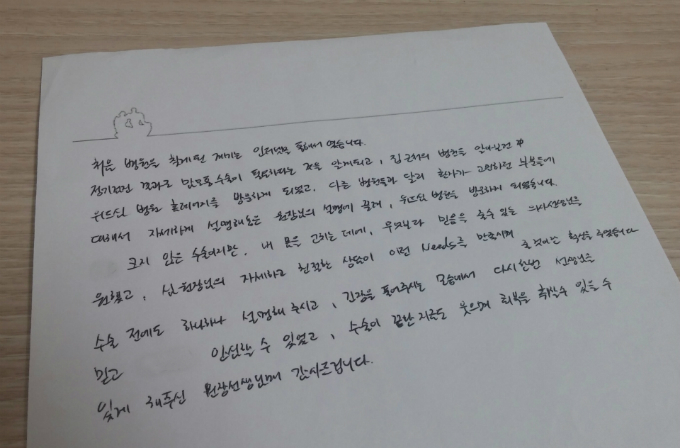 처음 병원을 찾게 된 계기는 인터넷을 통해서 였습니다.
정기검진 결과로 수술이 필요하다는 것을 알게되고, 집 근처의 병원을 알아보던 中
위드심 병원 홈페이지를 방문하게 되었고, 다른 병원들과 달리 환자가 고민하던 부분들에
대해서 자세하게 설명해놓은 원장님의 설명에 끌려, 위드심 병원을 방문하게 되었습니다.
크지 않은 수술이지만, 내 몸을 고치는 데에, 무엇보다 믿음을 줄 수 있는 의사선생님을
원했고, 심원장님의 자세하고 친절한 상담이 이런 Needs를 만족시켜 확신을 주었습니다
수술 전에도 하나하나 설명해 주시고, 긴장을 풀어주시는 모습에서 다시한번 선생님을
믿고 안심할 수 있었고, 수술이 끝난 지금도 웃으며 회복을 취할 수 있을 수
있게 해주신 원장선생님께 감사드립니다.